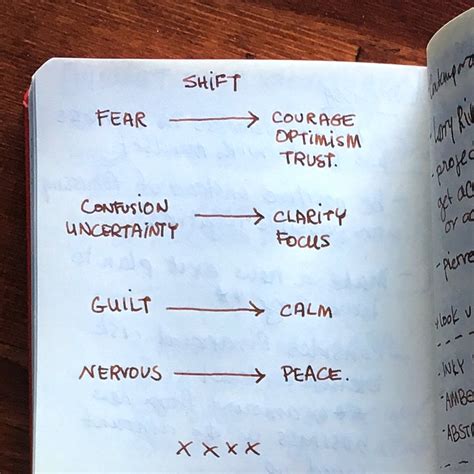 SHIFT
FEAR → COURAGE
OPTIMISM
TRUST.
CONFUSION
UNCERTAINTY → CLARITY
FOCUS
GUILT → CALM
NERVOUS → PEACE.
x x x x
- profes
get ac
or a
- pierre
look u
- INLY
- AMBE
ABSTR